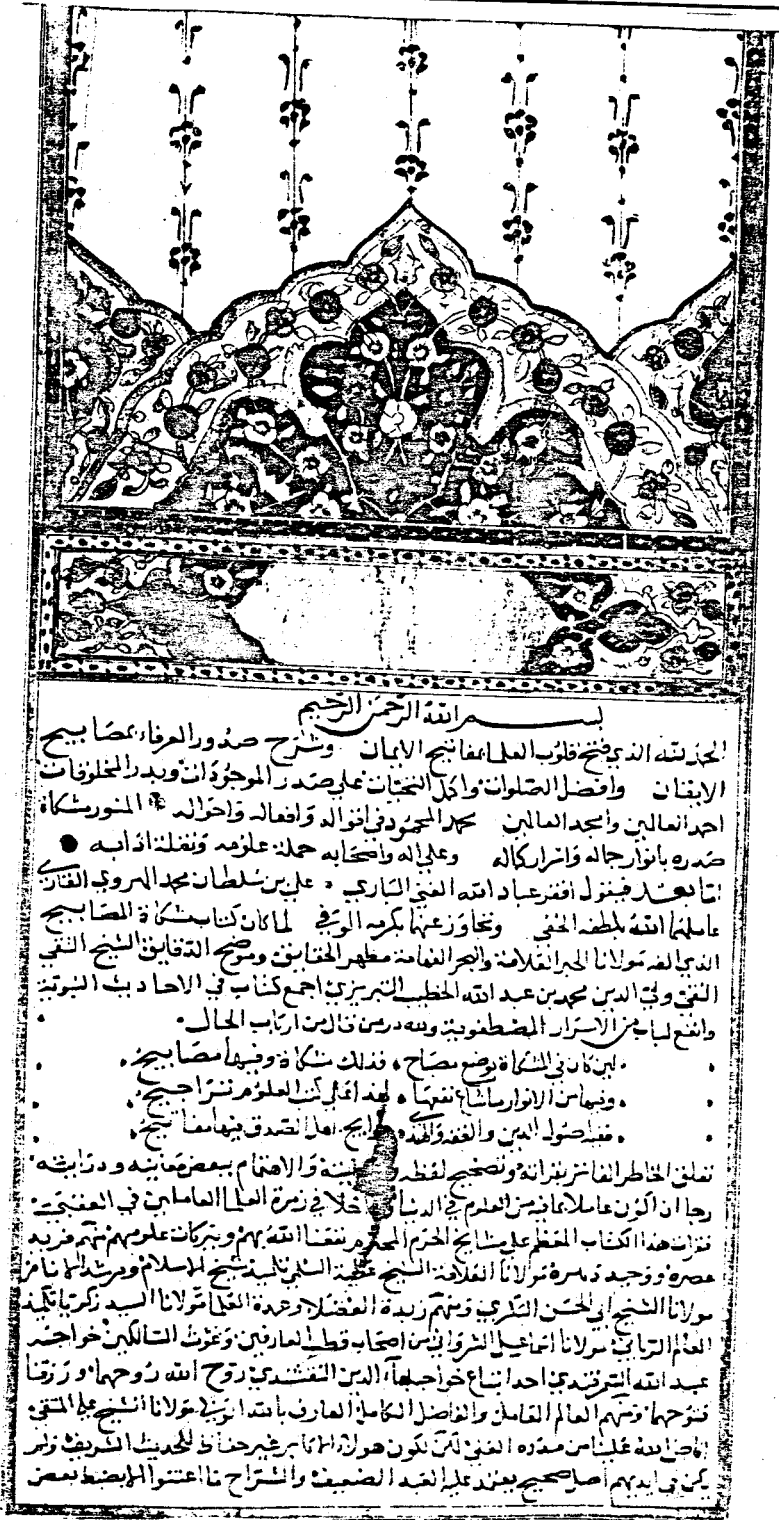 بسم الله الرحمن الرحيم
الحمد لله الذي فتح قلوب العلما بمفاتيح الايمان وشرح صدور العرفاء بمصابيح
الايقان وافضل الصلوات واكمل التحيات على صدر الموجودات وبدر المخلوقات
احمد العالمين وامجد العالمين محمد المحمود في اقواله وافعاله واحواله المنور مشكاة
صدره بانوار جماله واسرار كماله وعلى اله واصحابه حملة علومه ونقلة ادابه
اما بعد فيقول افقر عباد الله الغني الباري علي بن سلطان محمد الهروي القاري
عاملهما الله بلطفه الخفي وتجاوز عنهما بكرمه الوفي لما كان كتاب مشكاة المصابيح
الذي الفه مولانا الحبر العلامة والبحر الفهامة مظهر الحقايق وموضح الدقايق الشيخ التقي
النقي ولي الدين محمد بن عبد الله الخطيب التبريزي اجمع كتاب في الاحاديث النبوية
وانفع لباب من الاسرار المصطفوية ولله در من قال من ارباب الحال
لين كان في المشكاة يوضع مصباح فذلك مشكاة وفيها مصابيح
وفيها من الانوار ما شاع نفعها لهذا على كتب العلوم تراجيح
ففيه اصول الدين والفقه والهدى حوايج اهل الصدق فيها مفاتيح
تعلق الخاطر الفاتر بقرائته وتصحيح لفظه والاهتمام ببعض معانيه ودرايته
رجا ان اكون عاملا بما فيه من العلوم في الدنيا داخلا في زمرة العلما العاملين في العقبى
فقرات هذا الكتاب المعظم على مشايخ الحرم المحترم نفعنا الله بهم وببركات علومهم منهم فريد
عصره ووحيد دهره مولانا العلامة الشيخ عطية السلمي تلميذ شيخ الاسلام ومرشد الانام
مولانا الشيخ ابي الحسن البكري ومنهم زبدة الفضلا وعمدة العلما مولانا السيد زكريا تلميذ
العالم الرباني مولانا اسماعيل الشرواني من اصحاب قطب العارفين وغوث السالكين خواجه
عبيد الله السمرقندي احد اتباع خواجه بهاء الدين النقشبندي روح الله روحهما ورزقنا
فتوحهما ومنهم العالم العامل والفاضل الكامل العارف بالله الولي مولانا الشيخ علي المتقي
افاض الله علينا من مدده العلي لكن لكون هولاء الاكابر غير حفاظ للحديث الشريف ولم
يكن في ايديهم اصل صحيح يعتمد عليه العبد الضعيف والشراح ما اعتنوا الا بضبط بعض